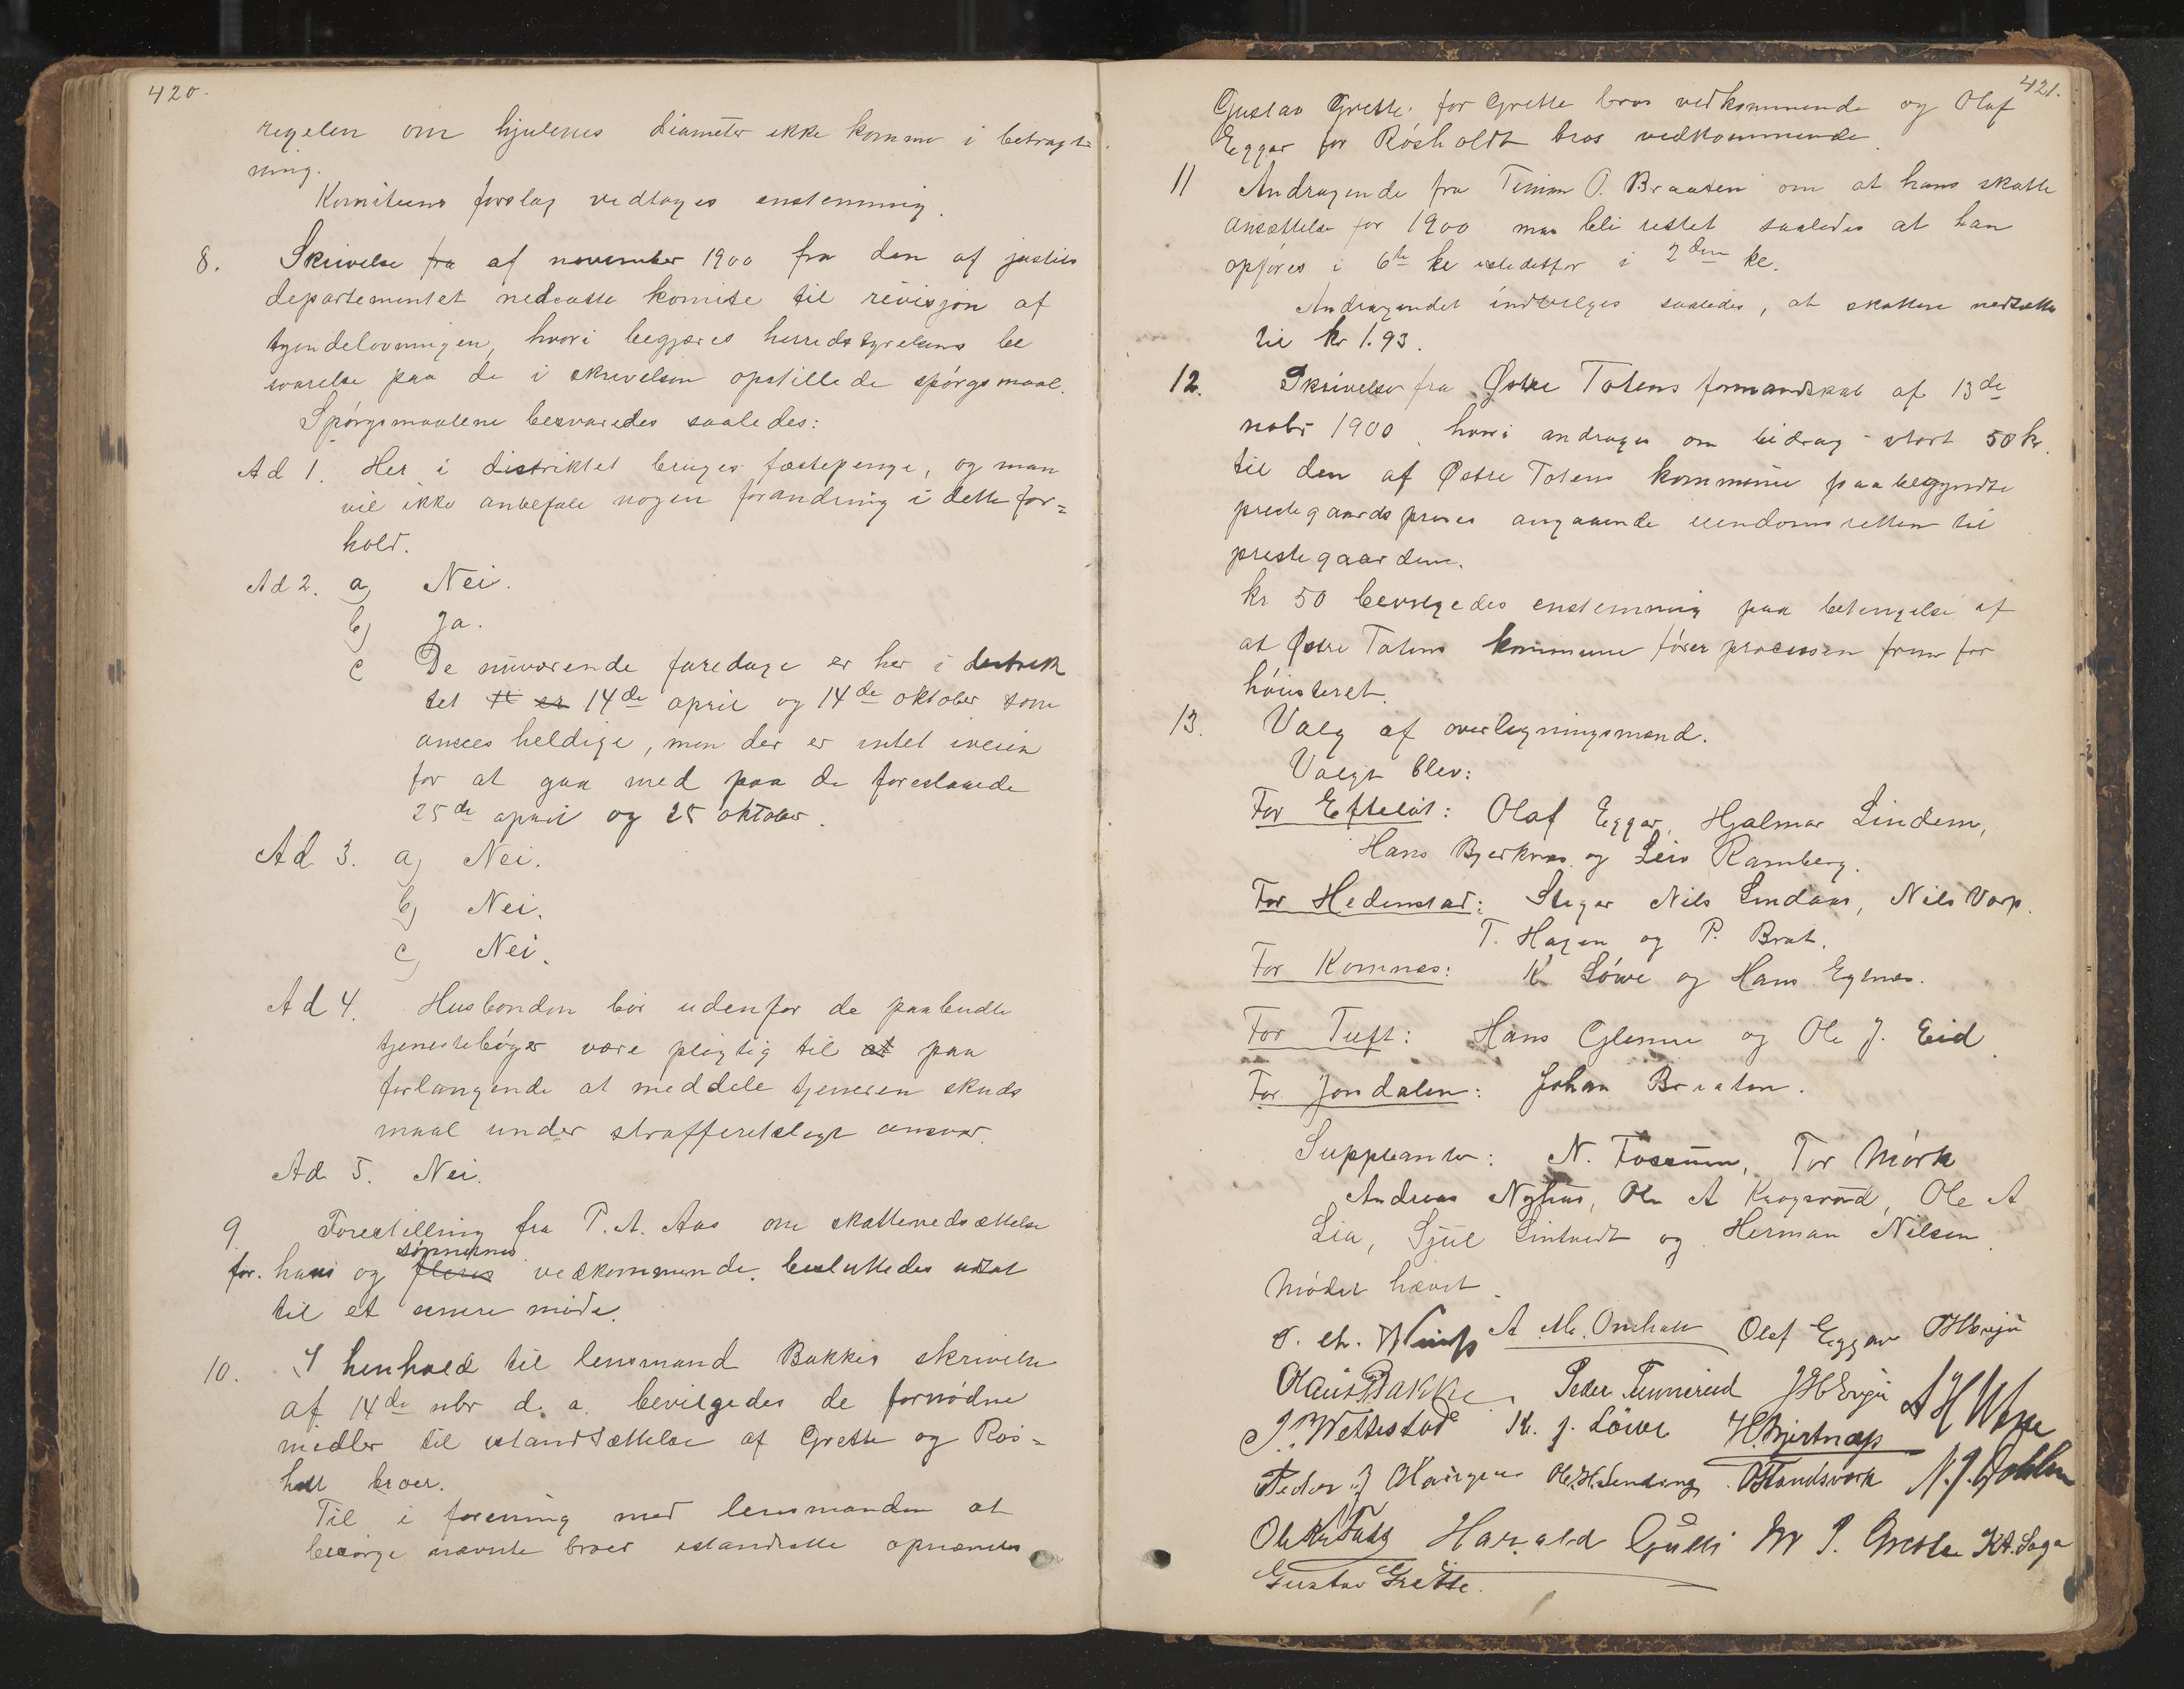 420.
regelen om hjulenes diameter ikke komme i betragt
ning.
Komiteens forslag vedtoges enstemmig.
8. Skrivelse fra af november 1900 fra den af justits
departementet nedsatte komite til revisjon af
tyendelovningen, hvori begjæres herredsstyrelsens be
svarelse paa de i skrivelsen opstillede spörgsmaal.
Spörgsmaalene besvaredes saaledes:
Ad 1. Her i distriktet bruges fæstepenge, og man
vil ikke anbefale nogen forandring i dette for=
hold.
Ad 2. a) Nei.
b) Ja.
c De nuværende faredage er her i distrik
tet er 14de april og 14de oktober som
ansees heldige, men der er intet iveien
for at gaa med paa de foreslaaede
25de april og 25 oktober.
Ad 3. a) Nei.
b) Nei.
c) Nei.
Ad 4. Husbonden bör udenfor de paabudte
tjenestebøger være pligtig til at paa
forlangende at meddele tjeneren skuds
maal under strafferetsligt ansvar.
Ad 5. Nei.
9 Forestilling fra P. A. Aas om skattenedsættelse
sönnernes
for hans og fleres vedkommende besluttedes udsat
til et senere möde.
10. I henhold til lensmand Bakkes skrivelse
af 14de nbr d. a. bevilgedes de fornödne
midler til istandsættelse af Grette og Rös=
holt broer.
Til i forening med lensmanden at
besörge nævnte broer istandsatte opnævntes
421.
Gustav Grette for Grette bros vedkommende og Olaf
Eggar for Rösholdt bros vedkommende.
11 Andragende fra Timan O. Braaten om at hans skatte
ansættelse for 1900 maa bli rettet saaledes at han
opföres i 6te kl istedetfor i 2den kl.
Andragendet indvilges saaledes, at skatten nedsættes
til kr 1.93.
12. Skrivelse fra Østre Totens formandskab af 13de
nobr 1900, hvori andrages om bidrag stort 50 kr.
til den af Østre Totens kommune paabegyndte
prestegaardsproces angaaende eiendomsretten til
prestegaardene.
kr 50 bevilgedes enstemmig paa betingelse af
at Østre Totens kommune förer processen frem for
höiesteret.
13. Valg af overligningsmænd.
Valgt blev:
For Efteløt: Olaf Eggar, Hjalmar Lindem,
Hans Bjerknæs og Leiv Ramberg.
For Hedenstad: Steger Nils Lindaas, Nils Vorp.
T. Hagen og P. Brat.
For Komnes: K Löwe og Hans Eglnes.
For Tuft: Hans Glenne og Ole J. Eid.
For Jondalen: Johan Braaten.
Suppleanter: N. Fossum, Tor Mörk
Andreas Nyhus, Ole A Kragsrud, Ole A
Lia, Sjul Lintvedt og Herman Nilsen.
Mödet hævet.
Olaf Eggar
Olaus Bakke Peder
J. Wettestad K. J. Löwe H. Bjerknæs
Peder J Ole H. Landsværk
Harald Gulli M P. Grette K A. Saga
Gustav Grette.